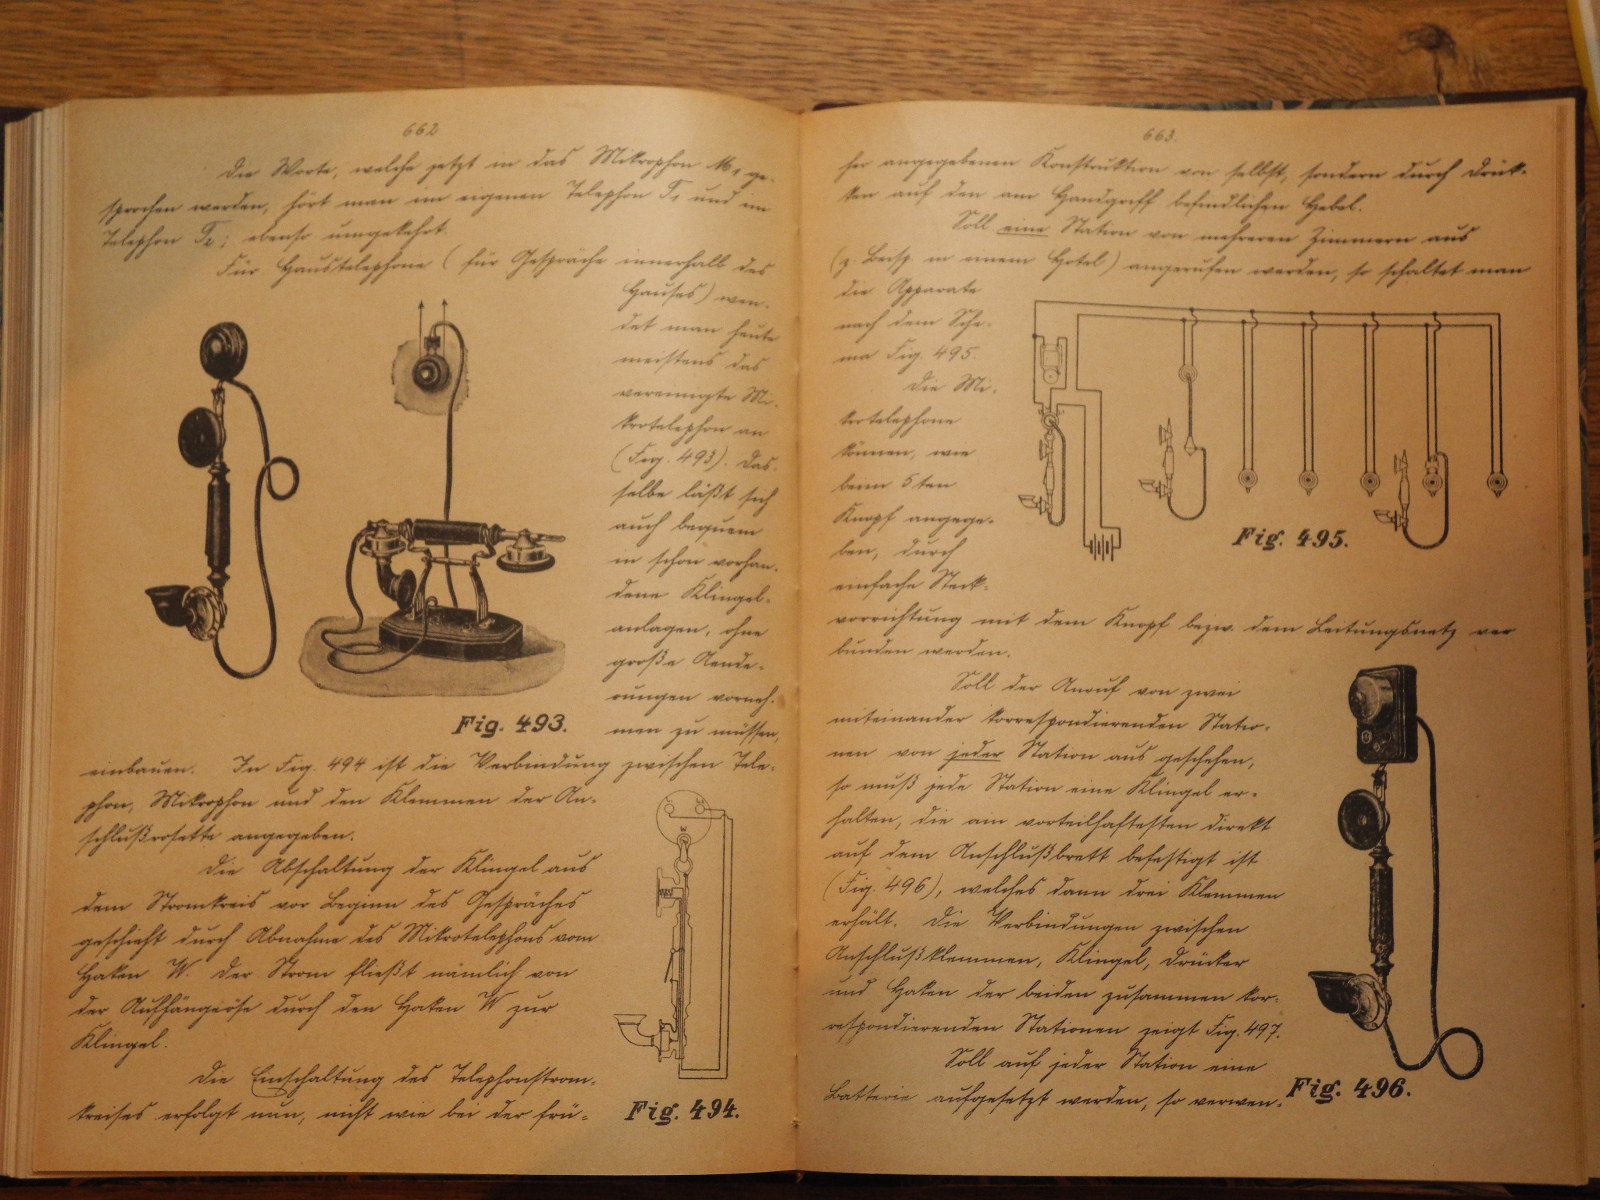 662
Die Worte, welche jetzt in das Mikrophon M₁ ge-
sprochen werden, hört man im eigenen Telephon T₁ und im
Telephon T₂; ebenso umgekehrt.
Für Haustelephone (für Gespräche innerhalb des
Hauses) wen-
det man heute
meistens das
vereinigte Mi-
krotelephon an
(Fig. 493). Das-
selbe läßt sich
auch bequem
in schon vorhan-
dene Klingel-
anlagen, ohne
große Aende-
rungen vorneh-
men zu müssen,
Fig. 493.
einbauen. In Fig. 494 ist die Verbindung zwischen Tele-
phon, Mikrophon und den Klemmen der An-
schlußrosette angegeben.
Die Abschaltung der Klingel aus
dem Stromkreis vor Beginn des Gespräches
geschieht durch Abnahme des Mikrotelephons vom
Haken W. Der Strom fließt nämlich von
der Aufhängeöse durch den Haken W zur
Klingel.
Die Einschaltung des Telephonstrom-
kreises erfolgt nun, nicht wie bei der frü-
Fig. 494.
663.
her angegebenen Konstruktion von selbst, sondern durch Drük-
ken auf den am Handgriff befindlichen Hebel.
Soll eine Station von mehreren Zimmern aus
(z. Beisp. in einem Hotel) angerufen werden, so schaltet man
die Apparate
nach dem Sche-
ma Fig. 495.
Die Mi-
krotelephone
können, wie
beim 6ten
Knopf angege-
ben, durch
einfache Steck-
Fig. 495.
vorrichtung mit dem Knopf bezw. dem Leitungsnetz ver
bunden werden.
Soll der Anruf von zwei
miteinander korrespondierenden Statio-
nen von jeder Station aus geschehen,
so muß jede Station eine Klingel er-
halten, die am vorteilhaftesten direkt
auf dem Anschlußbrett befestigt ist
(Fig. 496), welches dann drei Klemmen
erhält. Die Verbindungen zwischen
Anschlußklemmen, Klingel, Drücker
und Haken der beiden zusammen kor-
respondierenden Stationen zeigt Fig. 497.
Soll auf jeder Station eine
Batterie aufgesetzt werden, so verwen-
Fig. 496.